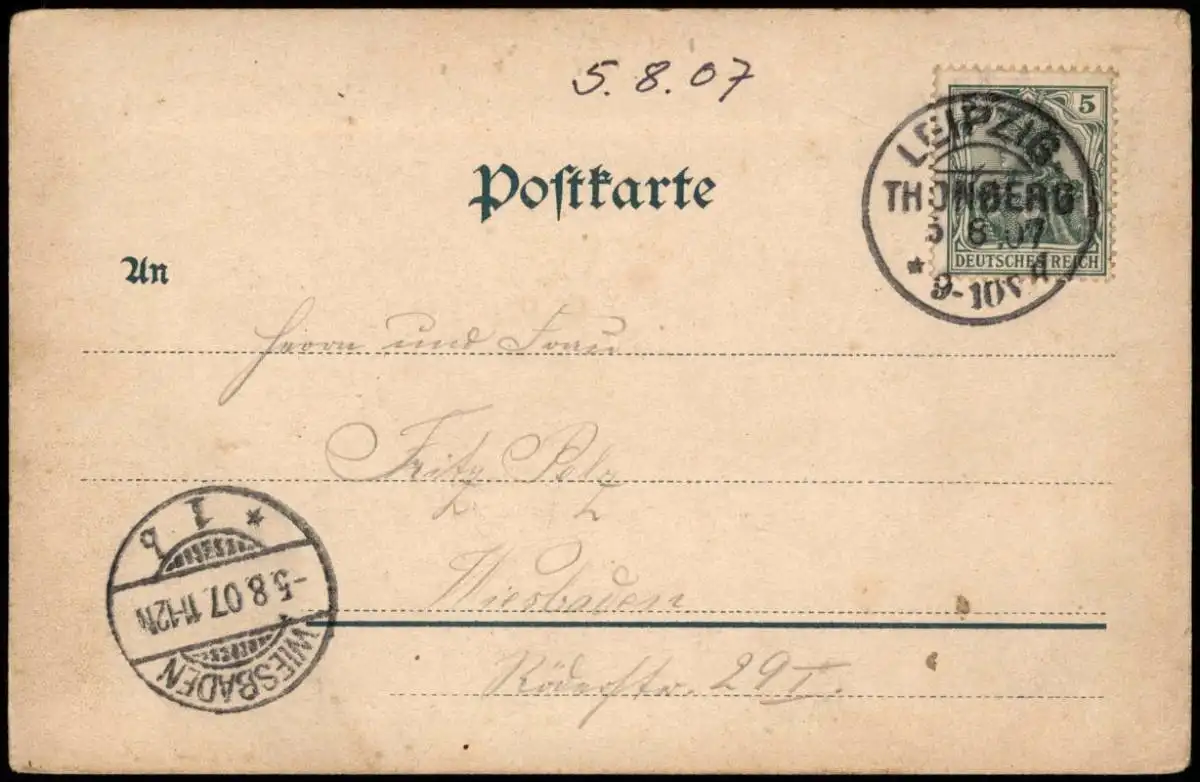 5.8.07
5
DEUTSCHES REICH
LEIPZIG
THONBERG
5 8.07
* 9-10V d
Postkarte
An
Herrn und Frau
Fritz Polz
Wiesbaden
Röderstr. 29 I.
* 1 b
-5.8.07.11-12N
WIESBADEN